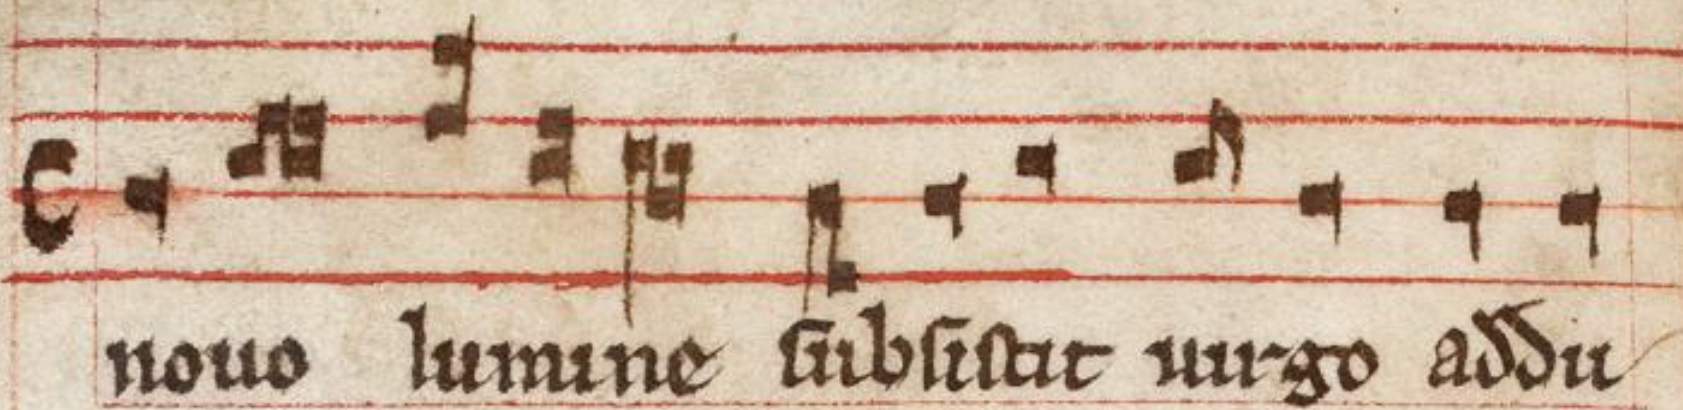 nouo lumine subsistit uirgo addu